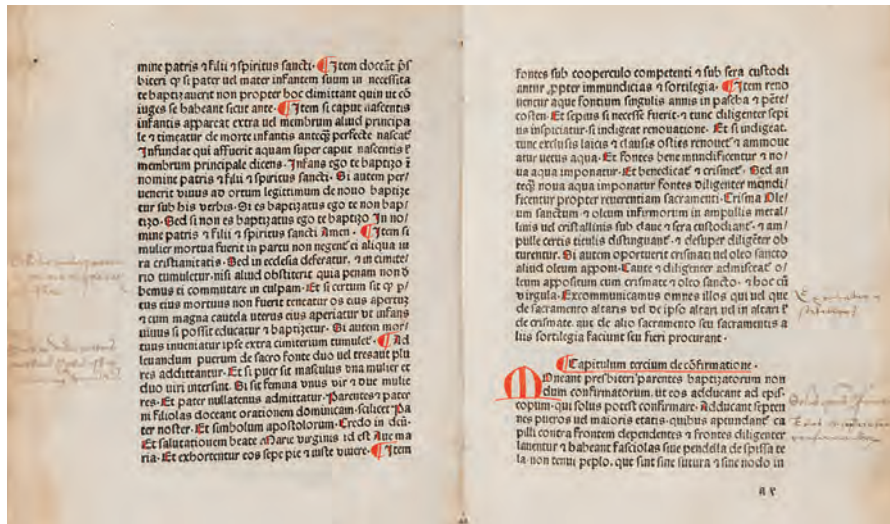 mine patris ⁊ filii ⁊ spiritus sancti. ¶ Item doceãt p̃s
biteri ꝙ si pater uel mater infantem suum in necessita
te baptizauerit non propter hoc dimittant quin ut cõ
iuges se habeant sicut ante. ¶ Item si caput nascentis
infantis appareat extra uel membrum aliud principa
le ⁊ timeatur de morte infantis anteq̃ perfecte nascat᷑
Infundat qui affuerit aquam super caput nascentis ł
membrum principale dicens. Infans ego te baptizo ĩ
nomine patris ⁊ filii ⁊ spiritus sancti. Si autem per/
uenerit uiuus ad ortum legittimum de nouo baptize
tur sub his verbis. Si es baptizatus ego te non bap/
tizo. Sed si non es baptizatus ego te baptizo In no/
mine patris ⁊ filii ⁊ spiritus sancti Amen. ¶ Item si
mulier mortua fuerit in partu non negent᷑ ei aliqua iu
ra cristianitatis. Sed in ecclesia deferatur. ⁊ in cimite/
rio tumuletur. nisi aliud obstiterit quia penam non d̃
bemus ei commutare in culpam. Et si certum sit ꝙ p/
tus eius mortuus non fuerit teneatur os eius apertũ
⁊ cum magna cautela uterus eius aperiatur ut infans
uiuus si possit educatur ⁊ baptizetur. Si autem mor/
tuus inueniatur ipse extra cimiterium tumulet᷑. ¶ Ad
leuandum puerum de sacro fonte duo uel tres aut plu
res addittantur. Et si puer sit masculus vna mulier et
duo uiri intersint. Si sit femina vnus vir ⁊ due mulie
res. Et pater nullatenus admittatur. Parentes ⁊ pater
ni filiolas doceant orationem dominicam. scilicet Pa
ter noster. Et simbolum apostolorum. Credo in deũ.
Et salutationem beate Marie virginis id est Aue ma
ria. Et exhortentur eos sepe pie ⁊ iuste viuere. ¶ Item
fontes sub cooperculo competenti ⁊ sub sera custodi
antur ꝓpter immundicias ⁊ sortilegia. ¶ Item reno
uentur aque fontium singulis annis in pascha ⁊ pẽte/
costen. Et sepius si necesse fuerit. ⁊ tunc diligenter sepi
us inspiciatur. si indigeat renouatione. Et si indigeat.
tunc exclusis laicis ⁊ clausis ostiis renouet᷑ ⁊ ammoue
atur uetus aqua. Et fontes bene mundificentur ⁊ no/
ua aqua imponatur. Et benedicat᷑ ⁊ crismet᷑. Sed an
teq̃ noua aqua imponatur fontes diligenter mundi/
ficentur propter reuerentiam sacramenti. Crisma Ole/
um sanctum ⁊ oleum infirmorum in ampullis metal/
linis uel cristallinis sub claue ⁊ sera custodiant᷑. ⁊ am/
pulle certis titulis distinguant᷑. ⁊ desuper diligẽter ob
turentur. Si autem oportuerit crismati uel oleo sancto
aliud oleum apponi. Caute ⁊ diligenter admisceat᷑ o/
leum appositum cum crismate ⁊ oleo sancto. ⁊ hoc cũ
virgula. Excommunicamus omnes illos qui uel que
de sacramento altaris uel de ipso altari uel in altari ł
de crismate. aut de alio sacramento seu sacramentis a
liis sortilegia faciunt seu fieri procurant.
¶ Capitulum tercium de cõfirmatione.
Moneant presbiteri parentes baptizatorum non
dum confirmatorum. ut eos adducant ad epis/
copum. qui solus potest confirmare. Adducant septen
nes pueros uel maioris etatis. quibus aptundant᷑ ca
pilli contra frontem dependentes ⁊ frontes diligenter
lauentur ⁊ habeant fasciolas siue pendella de spissa te
la. non tenui peplo. que sint sine sutura ⁊ sine nodo in